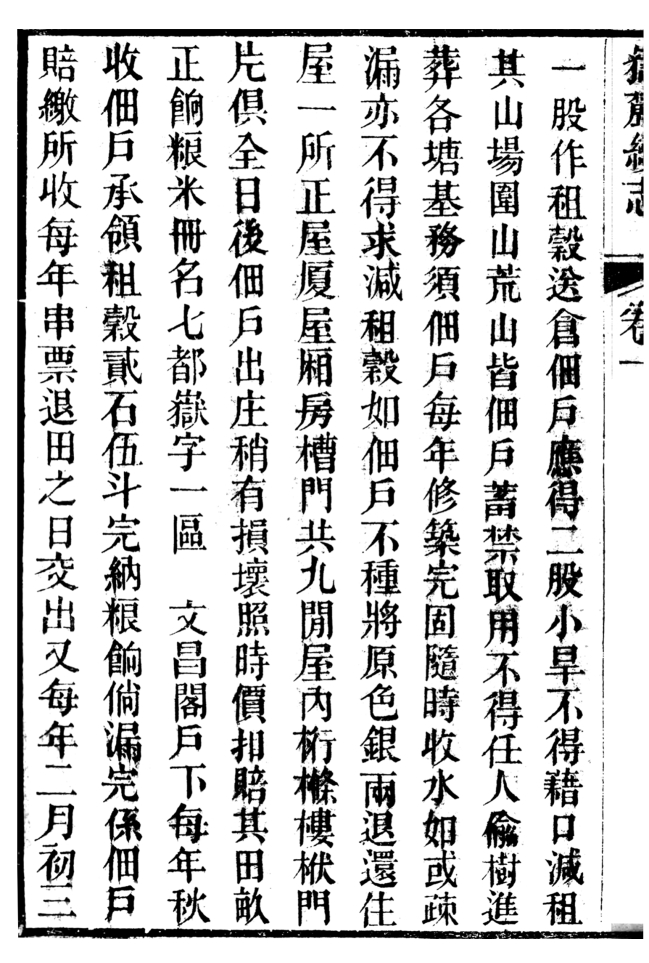 嶽麓續志 卷一
一股作租穀送倉佃戶應得二股小旱不得藉口減租
其山場圍山荒山皆佃戶蓄禁取用不得任人偸樹進
葬各塘基務須佃戶每年修築完固隨時收水如或疎
漏亦不得求減租穀如佃戶不種將原色銀兩退還住
屋一所正屋廈屋厢房槽門共九間屋內桁橼樓栿門
片俱全日後佃戶出庄稍有損壞照時價扣賠其田畝
正餉粮米冊名七都嶽字一區 文昌閣戶下每年秋
收佃戶承領租穀貳石伍斗完納粮餉倘漏完係佃戶
賠繳所收每年串票退田之日交出又每年二月初三